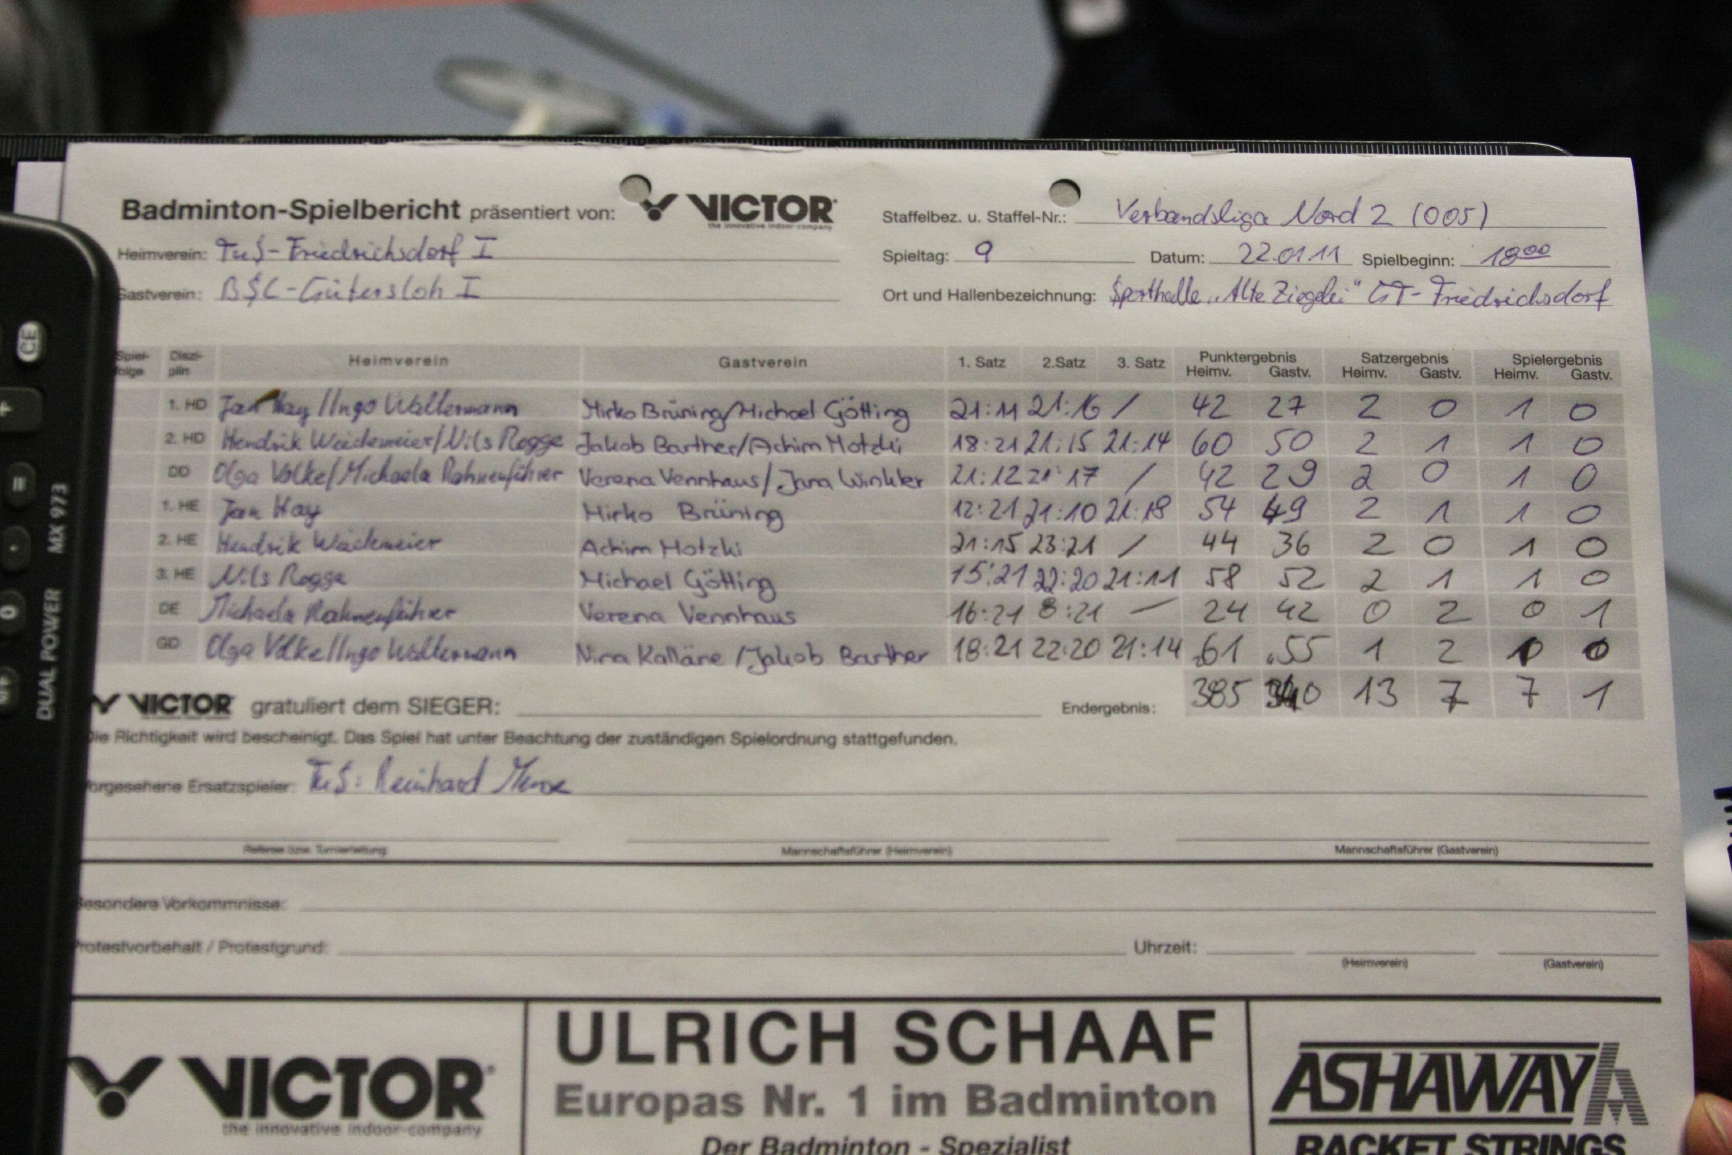 Badminton-Spielbericht präsentiert von: VICTOR the innovative indoor-company
Staffelbez. u. Staffel-Nr.: Verbandsliga Nord 2 (005)
Heimverein: TuS-Friedrichsdorf I
Spieltag: 9 Datum: 22.01.11 Spielbeginn: 18⁰⁰
Gastverein: BSC-Gütersloh I
Ort und Hallenbezeichnung: Sporthalle „Alte Ziegelei" GT-Friedrichsdorf
Spiel-folge Diszi-plin Heimverein Gastverein 1. Satz 2.Satz 3. Satz Punktergebnis Heimv. Gastv. Satzergebnis Heimv. Gastv. Spielergebnis Heimv. Gastv.
1. HD Jan Hay/Ingo Waltermann Mirko Brüning/Michael Götting 21:11 21:16 / 42 27 2 0 1 0
2. HD Hendrik Weidemeier/Nils Rogge Jakob Barther/Achim Motzki 18:21 21:15 21:14 60 50 2 1 1 0
DD Olga Volke/Michaela Rahnenführer Verena Vennhaus/Jana Winkler 21:12 21:17 / 42 29 2 0 1 0
1. HE Jan Hay Mirko Brüning 12:21 21:10 21:18 54 49 2 1 1 0
2. HE Hendrik Weidemeier Achim Motzki 21:15 23:21 / 44 36 2 0 1 0
3. HE Nils Rogge Michael Götting 15:21 22:20 21:11 58 52 2 1 1 0
DE Michaela Rahnenführer Verena Vennhaus 16:21 8:21 — 24 42 0 2 0 1
GD Olga Volke/Ingo Waltermann Nina Kalläne/Jakob Barther 18:21 22:20 21:14 61 55 1 2 1 0
VICTOR gratuliert dem SIEGER: Endergebnis: 385 340 13 7 7 1
Die Richtigkeit wird bescheinigt. Das Spiel hat unter Beachtung der zuständigen Spielordnung stattgefunden.
Vorgesehene Ersatzspieler: TuS: Reinhard
Referee bzw. Turnierleitung Mannschaftsführer (Heimverein) Mannschaftsführer (Gastverein)
Besondere Vorkommnisse:
Protestvorbehalt / Protestgrund: Uhrzeit: (Heimverein) (Gastverein)
VICTOR the innovative indoor-company
ULRICH SCHAAF
Europas Nr. 1 im Badminton
Der Badminton - Spezialist
ASHAWAY
RACKET STRINGS
CE
+
=
.
0
MX 973
DUAL POWER